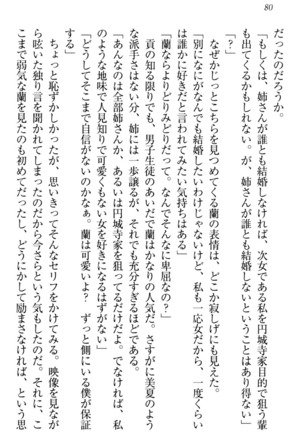 80
だったのだろうか。
「もしくは、姉さんが誰とも結婚しなければ、次女である私を円城寺家目的で狙う輩
も出てくるかもしれない。が、姉さんが誰とも結婚しないということはあり得ない」
「？」
なぜかじっとこちらを見つめてくる蘭の表情は、どこか寂しげにも見えた。
「別になにがなんでも結婚したいわけじゃないけど、私も一応女だから、一度くらい
は誰かに好きだと言われてみたい気持ちはある」
「蘭ならよりどりみどりだって。なんでそんなに卑屈なの？」
貢の知る限りでも、男子生徒のあいだで蘭はかなりの人気だ。さすがに美夏のよう
な派手さはない分、姉には一歩譲るが、それでも充分すぎるほどである。
「あんなのは全部姉さんか、あるいは円城寺家を狙ってるだけだよ。でなければ、私
のような地味で人見知りで可愛くもない女を好きになるはずがない」
「どうしてそこまで自信がないのかなぁ。蘭は可愛いよ？　ずっと側にいる僕が保証
する」
ちょっと恥ずかしかったが、思いきってそんなセリフをかけてみる。映像を見なが
ら呟いた独り言を聞かれてしまったのだから今さらという気もしたのだ。それに、こ
こまで弱気な蘭を見たのも初めてだったし、どうにかして励まさなければ、という思